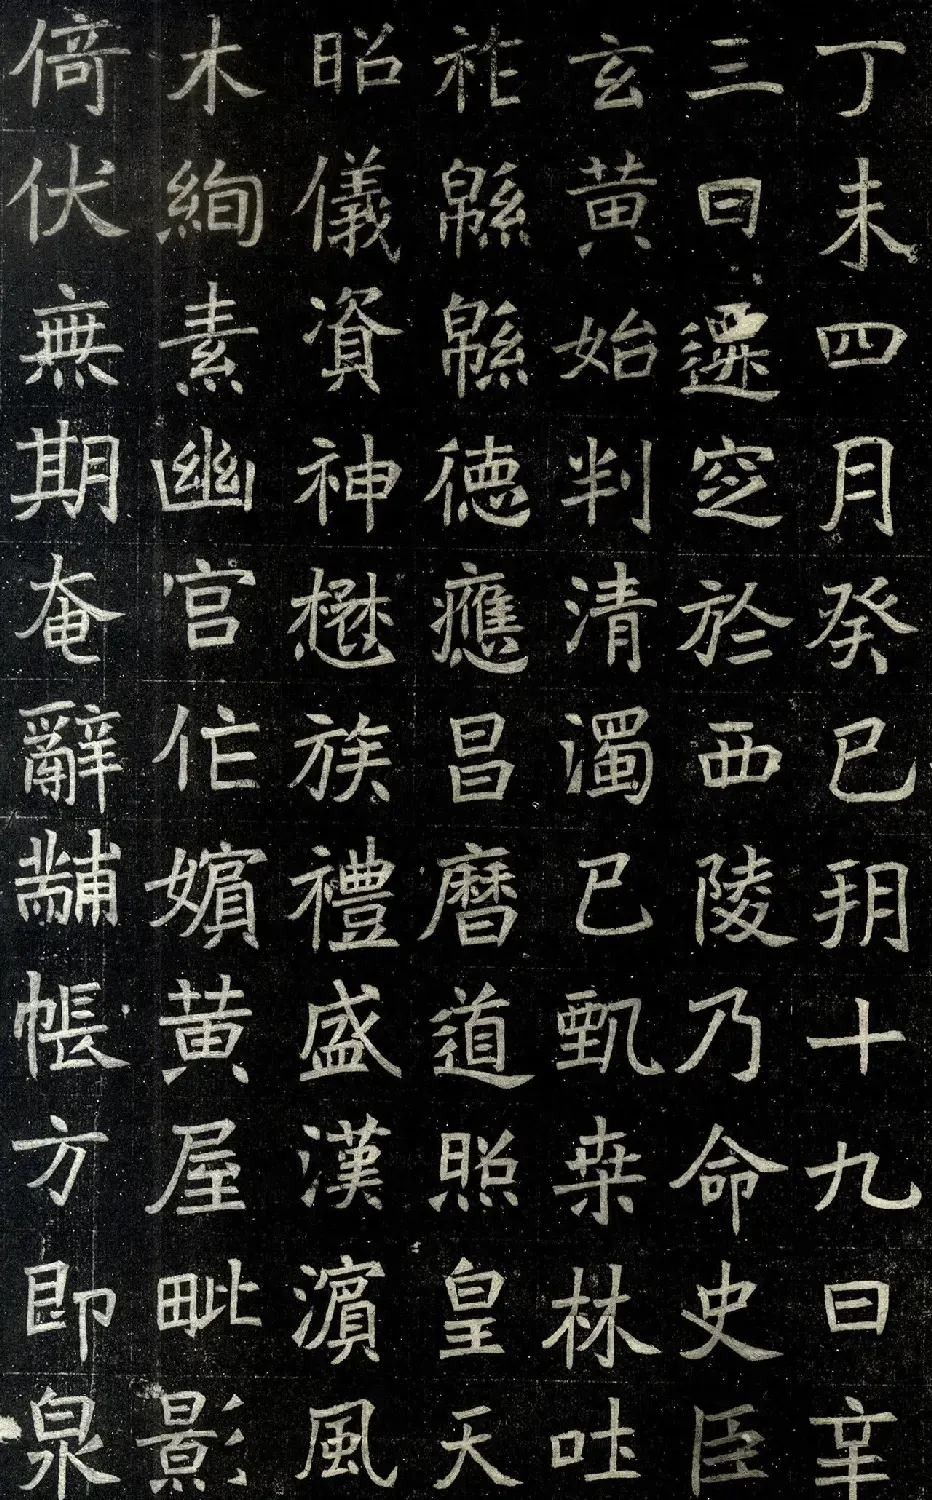 丁未四月癸巳朔十九日辛
三日遷窆於西陵乃命史臣
玄黄始判清濁已甄桒林吐
祚緜緜德應昌曆道照皇天
昭儀資神懋族禮盛漢濵風
木絢素幽宮作嬪黄屋毗影
倚伏無期奄辭黼帳方即泉